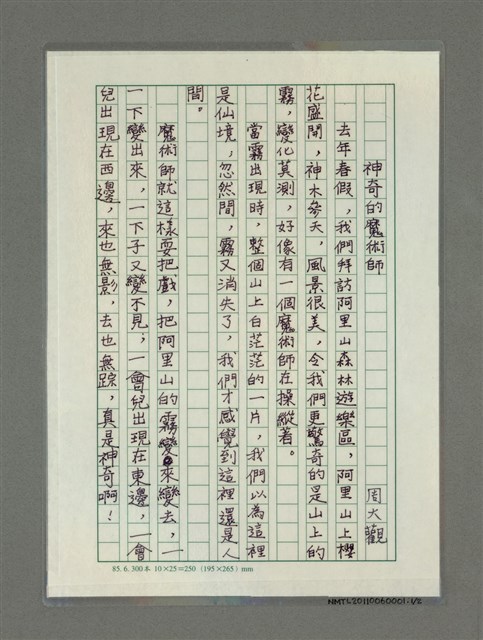 神奇的魔術師
周大觀
去年春假，我們拜訪阿里山森林遊樂區，阿里山上櫻
花盛開，神木參天，風景很美，令我們更驚奇的是山上的
霧，變化莫測，好像有一個魔術師在操縱著。
當霧出現時，整個山上白茫茫的一片，我們以為這裡
是仙境；忽然間，霧又消失了，我們才感覺到這裡還是人
間。
魔術師就這樣耍把戲，把阿里山的霧變來變去，一
一下變出來，一下子又變不見；一會兒出現在東邊，一會
兒出現在西邊，來也無影，去也無蹤，真是神奇啊！
85.6.300本 10×25=250 (195×265) mm
NMTL20110060001-1/2